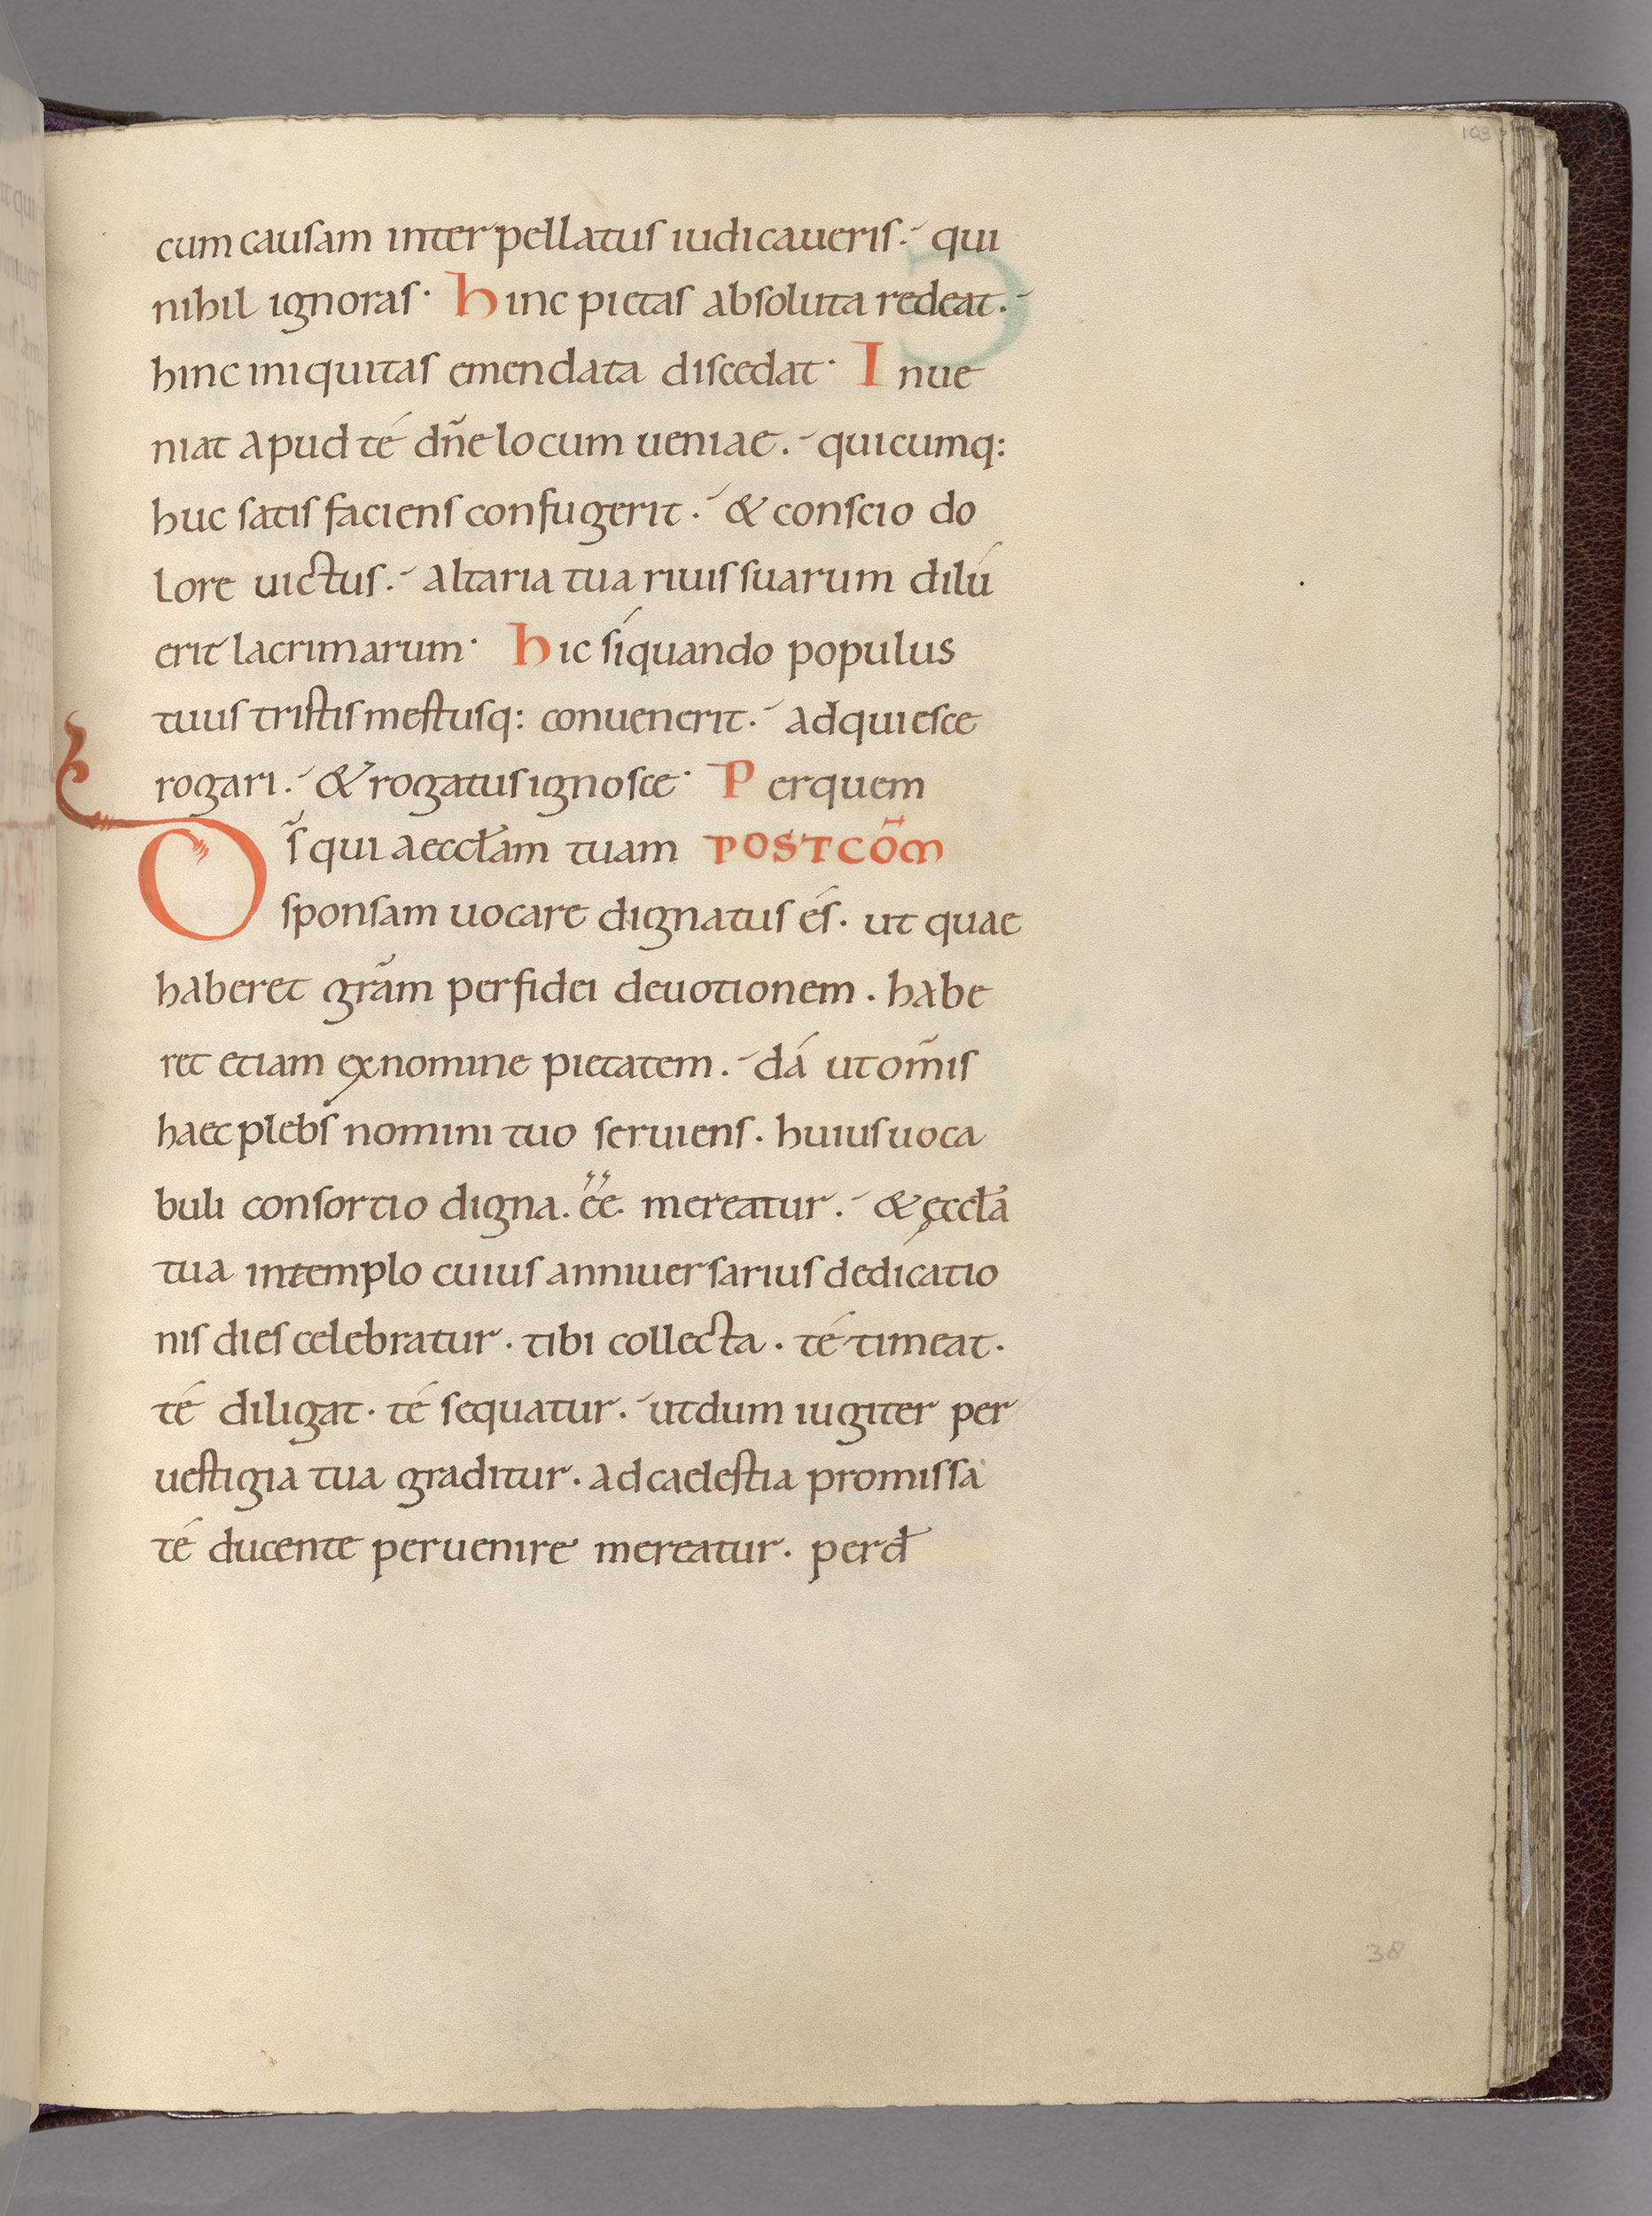 103
cum causam interpellatus iudicaueris. qui
nihil ignoras· hinc pietas absoluta redeat.
hinc iniquitas emendata discedat· Inue
niat apud té dñe locum ueniae. quicumq:
huc satisfaciens confugerit. & conscio do
lore uictus. altaria tua riuis suarum dilú
erit lacrimarum· hic síquando populus
tuus tristis mestusq: conuenerit. adquiesce
rogari. & rogatus ignosce· Per quem
Os̃ qui aeccłam tuam POSTCÕM
sponsam uocare dignatus és. ut quae
haberet grãm per fidei deuotionem. habe
ret etiam ex nomine pietatem. dá ut om̃is
haec plebs nomini tuo seruiens. huius uoca
buli consortio digna. ee. mereatur. & ęccła
tua in templo cuius anniuersarius dedicatio
nis dies celebratur. tibi collecta. té timeat.
té diligat. té sequatur. ut dum iugiter per
uestigia tua graditur. ad caelestia promissa
té ducente peruenire mereatur. per đ
38